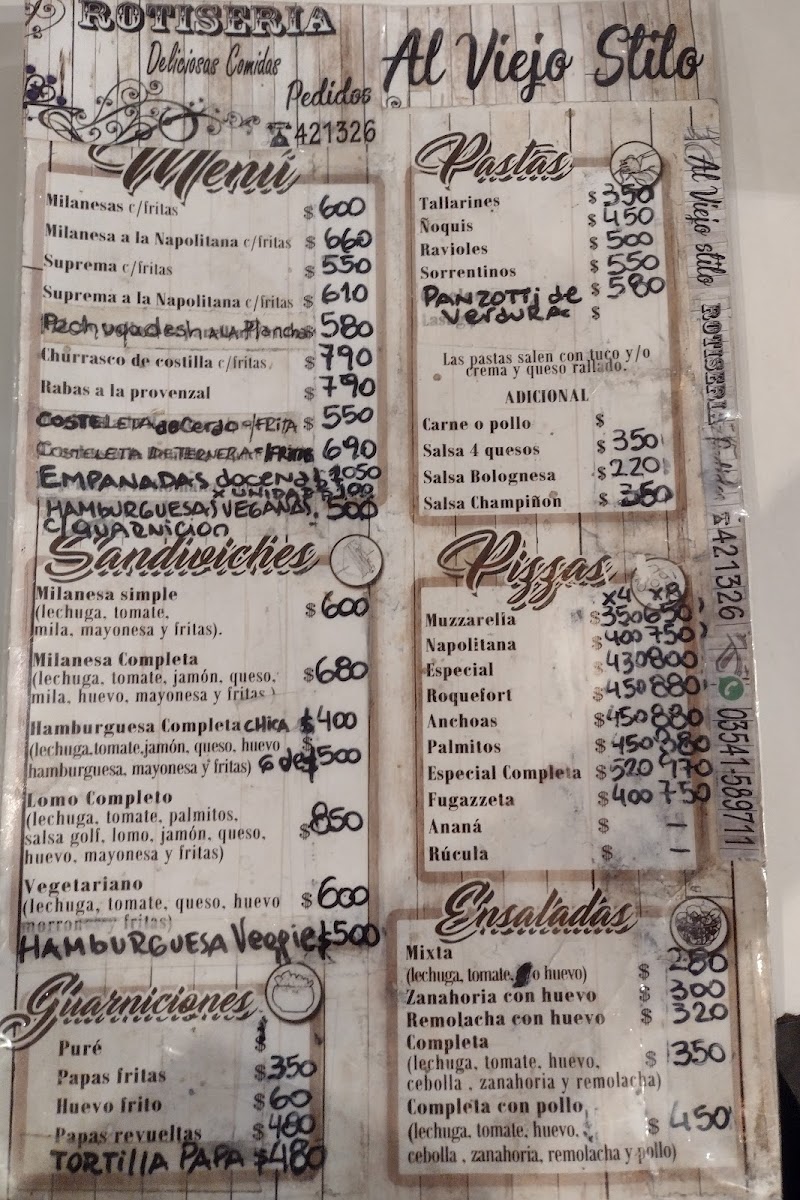 ROTISERIA
Deliciosas Comidas
Pedidos
421326
Al Viejo Stilo
Menú
Milanesas c/fritas $ 600
Milanesa a la Napolitana c/fritas $ 660
Suprema c/fritas $ 550
Suprema a la Napolitana c/fritas $ 610
a la Plancha 580
Churrasco de costilla c/fritas $ 790
Rabas a la provenzal $ 790
COSTELETA de Cerdo c/FRITA $ 550
COSTELETA DE TERNERA c/FRITAS 690
EMPANADAS docena $ 1050
x UNIDAD $ 100
HAMBURGUESAS VEGANAS. 500
C/GUARNICION
Sandwiches
Milanesa simple
(lechuga, tomate,
mila, mayonesa y fritas). $ 600
Milanesa Completa
(lechuga, tomate, jamón, queso, $ 680
mila, huevo, mayonesa y fritas )
Hamburguesa Completa CHICA $ 400
(lechuga,tomate,jamón, queso, huevo
hamburguesa, mayonesa y fritas) $500
Lomo Completo
(lechuga, tomate, palmitos,
salsa golf, lomo, jamón, queso, $ 850
huevo, mayonesa y fritas)
Vegetariano
(lechuga, tomate, queso, huevo $ 600
morrones y fritas)
HAMBURGUESA Veggie $500
Guarniciones
Puré $
Papas fritas $350
Huevo frito $60
Papas revueltas $480
TORTILLA PAPA $480
Pastas
Tallarines $ 350
Ñoquis $ 450
Ravioles $ 500
Sorrentinos $ 550
PANZOTTI de $ 580
VERDURA $
Las pastas salen con tuco y/o
crema y queso rallado.
ADICIONAL
Carne o pollo $
Salsa 4 quesos $ 350
Salsa Bolognesa $ 220
Salsa Champiñon $ 380
Pizzas
x4 x8
Muzzarella $350 650
Napolitana $400 750
Especial $430 800
Roquefort $450 880
Anchoas $450 880
Palmitos $450 880
Especial Completa $520 970
Fugazzeta $400 750
Ananá $ —
Rúcula $ —
Ensaladas
Mixta
(lechuga, tomate, y/o huevo) $ 280
Zanahoria con huevo $ 300
Remolacha con huevo $ 320
Completa
(lechuga, tomate, huevo, $ 350
cebolla , zanahoria y remolacha)
Completa con pollo
(lechuga, tomate, huevo, $ 450
cebolla , zanahoria, remolacha y pollo)
Al Viejo stilo ROTISERIA 421326 03541-589711